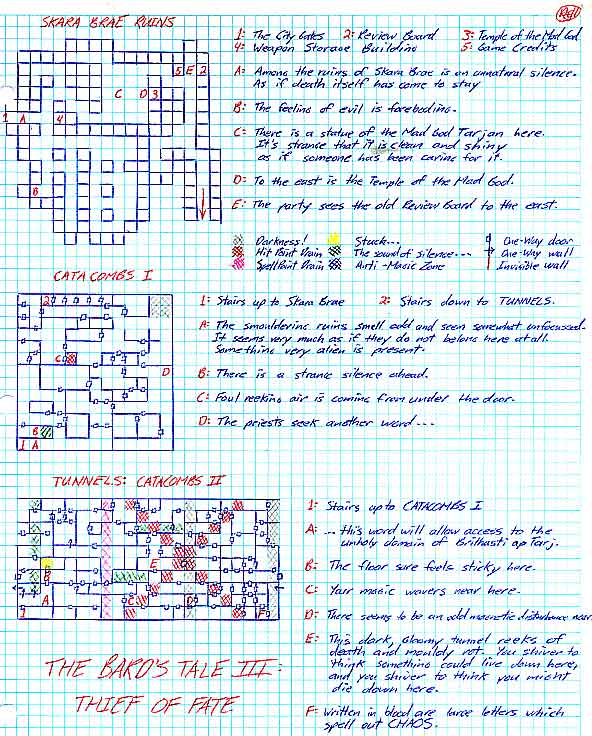 Red
SKARA BRAE RUINS
1: The City Gates 2: Review Board 3: Temple of the Mad God
4: Weapon Storage Building 5: Game Credits
A: Among the ruins of Skara Brae is an unnatural silence.
As if death itself has come to stay
B: The feeling of evil is forebodinG.
C: There is a statue of the Mad God Tarjan here.
It's strange that it is clean and shiny
as if someone has been caring for it.
D: To the east is the Temple of the Mad God.
E: The party sees the old Review Board to the east.
5 E 2
C D 3
1 A 4
B
Darkness! Stuck... One-Way door
Hit Point Drain The sound of silence... One-Way wall
Spell Point Drain Anti-Magic Zone Invisible wall
CATACOMBS I
1: Stairs up to Skara Brae 2: Stairs down to TUNNELS.
A: The smouldering ruins smell odd and seem somewhat unfocussed.
It seems very much as if they do not belong here at all.
Something very alien is present.
B: There is a strange silence ahead.
C: Foul reeking air is coming from under the door.
D: The priests seek another word...
2
C
D
B
1 A
TUNNELS: CATACOMBS II
1: Stairs up to CATACOMBS I
A: ... this word will allow access to the
unholy domain of Brilhasti ap Tarj.
B: The floor sure feels sticky here.
C: Your magic wavers near here.
D: There seems to be an odd magnetic disturbance near.
E: This dark, gloomy tunnel reeks of
death and mouldy rot. You shiver to
think something could live down here,
and you shiver to think you might
die down here.
F: Written in blood are large letters which
spell out CHAOS.
E
B
A C D
1 F
THE BARD'S TALE III:
THIEF OF FATE